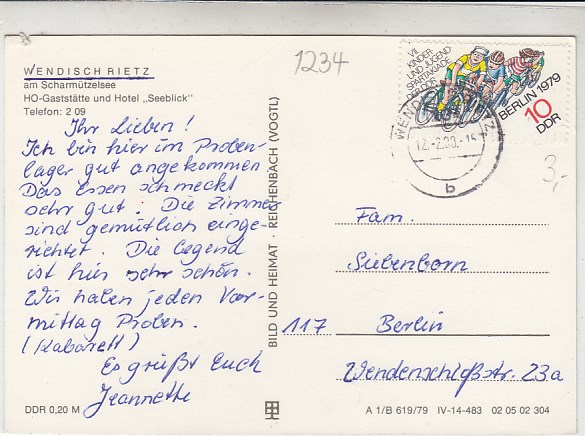 1234
WENDISCH RIETZ
am Scharmützelsee
HO-Gaststätte und Hotel „Seeblick"
Telefon: 2 09
Ihr Lieben!
Ich bin hier im Proben-
lager gut angekommen
Das Essen schmeckt
sehr gut. Die Zimmer
sind gemütlich einge-
richtet. Die Gegend
ist hier sehr schön.
Wir haben jeden Vor-
mittag Proben.
(Kabarett)
Es grüßt Euch
Jeannette
DDR 0,20 M
BILD UND HEIMAT · REICHENBACH (VOGTL)
VII.
KINDER-
UND JUGEND-
SPARTAKIADE
DER DDR
BERLIN 1979
10
DDR
WENDISCH RIETZ
12.-2.80.-15
b
3,-
Fam.
Siebenborn
117 Berlin
Wendenschloßstr. 23a
A 1/B 619/79 IV-14-483 02 05 02 304